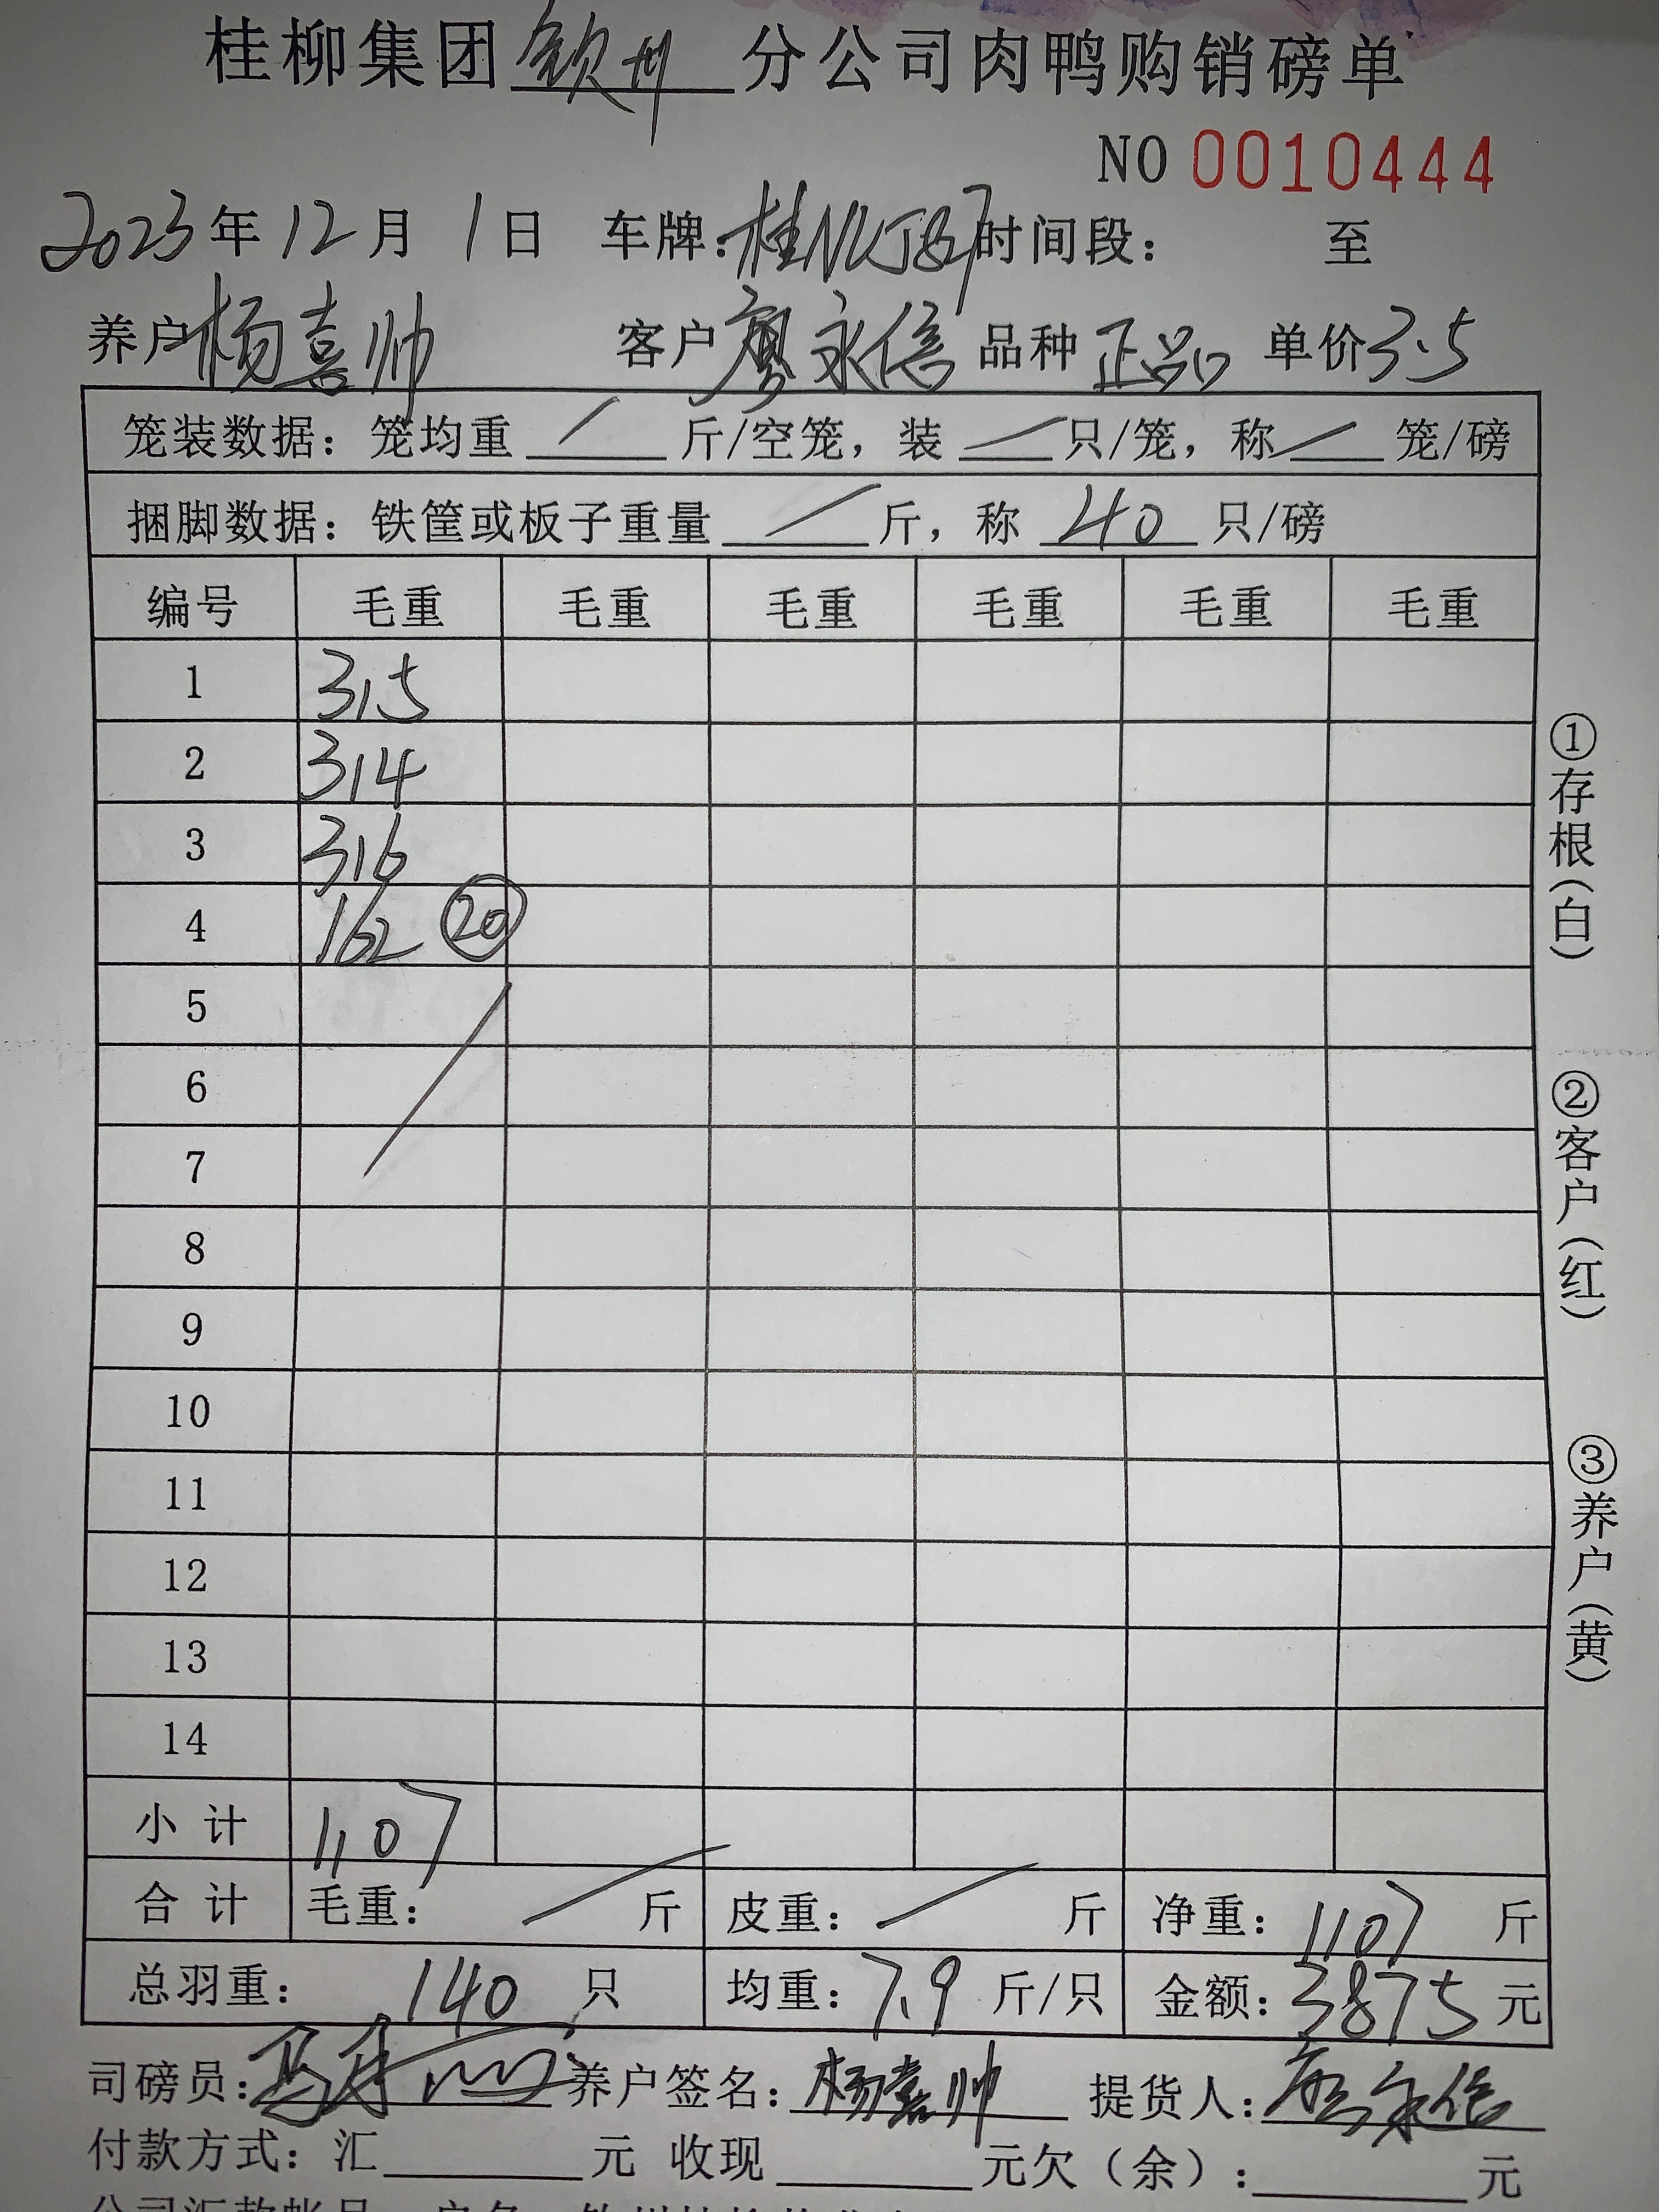 桂柳集团钦州分公司肉鸭购销磅单
NO 0010444
2023年12月1日 车牌：桂NUJ827 时间段： 至
养户 杨喜帅 客户 廖永信 品种 正品 单价 3.5
笼装数据：笼均重 / 斤/空笼，装 / 只/笼，称 / 笼/磅
捆脚数据：铁筐或板子重量 / 斤，称 40 只/磅
编号 毛重 毛重 毛重 毛重 毛重 毛重
1 315
2 314
3 316
4 162 ⑳
5
6
7
8
9
10
11
12
13
14
小计 1107
合计 毛重： / 斤 皮重： / 斤 净重：1107 斤
总羽重：140 只 均重：7.9 斤/只 金额：3875 元
司磅员： 养户签名：杨喜帅 提货人：廖永信
付款方式：汇 元 收现 元欠（余）： 元
①存根（白）
②客户（红）
③养户（黄）